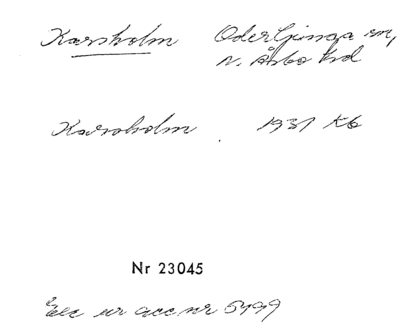 Karsholm Oderljunga sn,
N. Åsbo hd
Karsholm 1931 kb
Nr 23045
Exc ur acc nr 5499